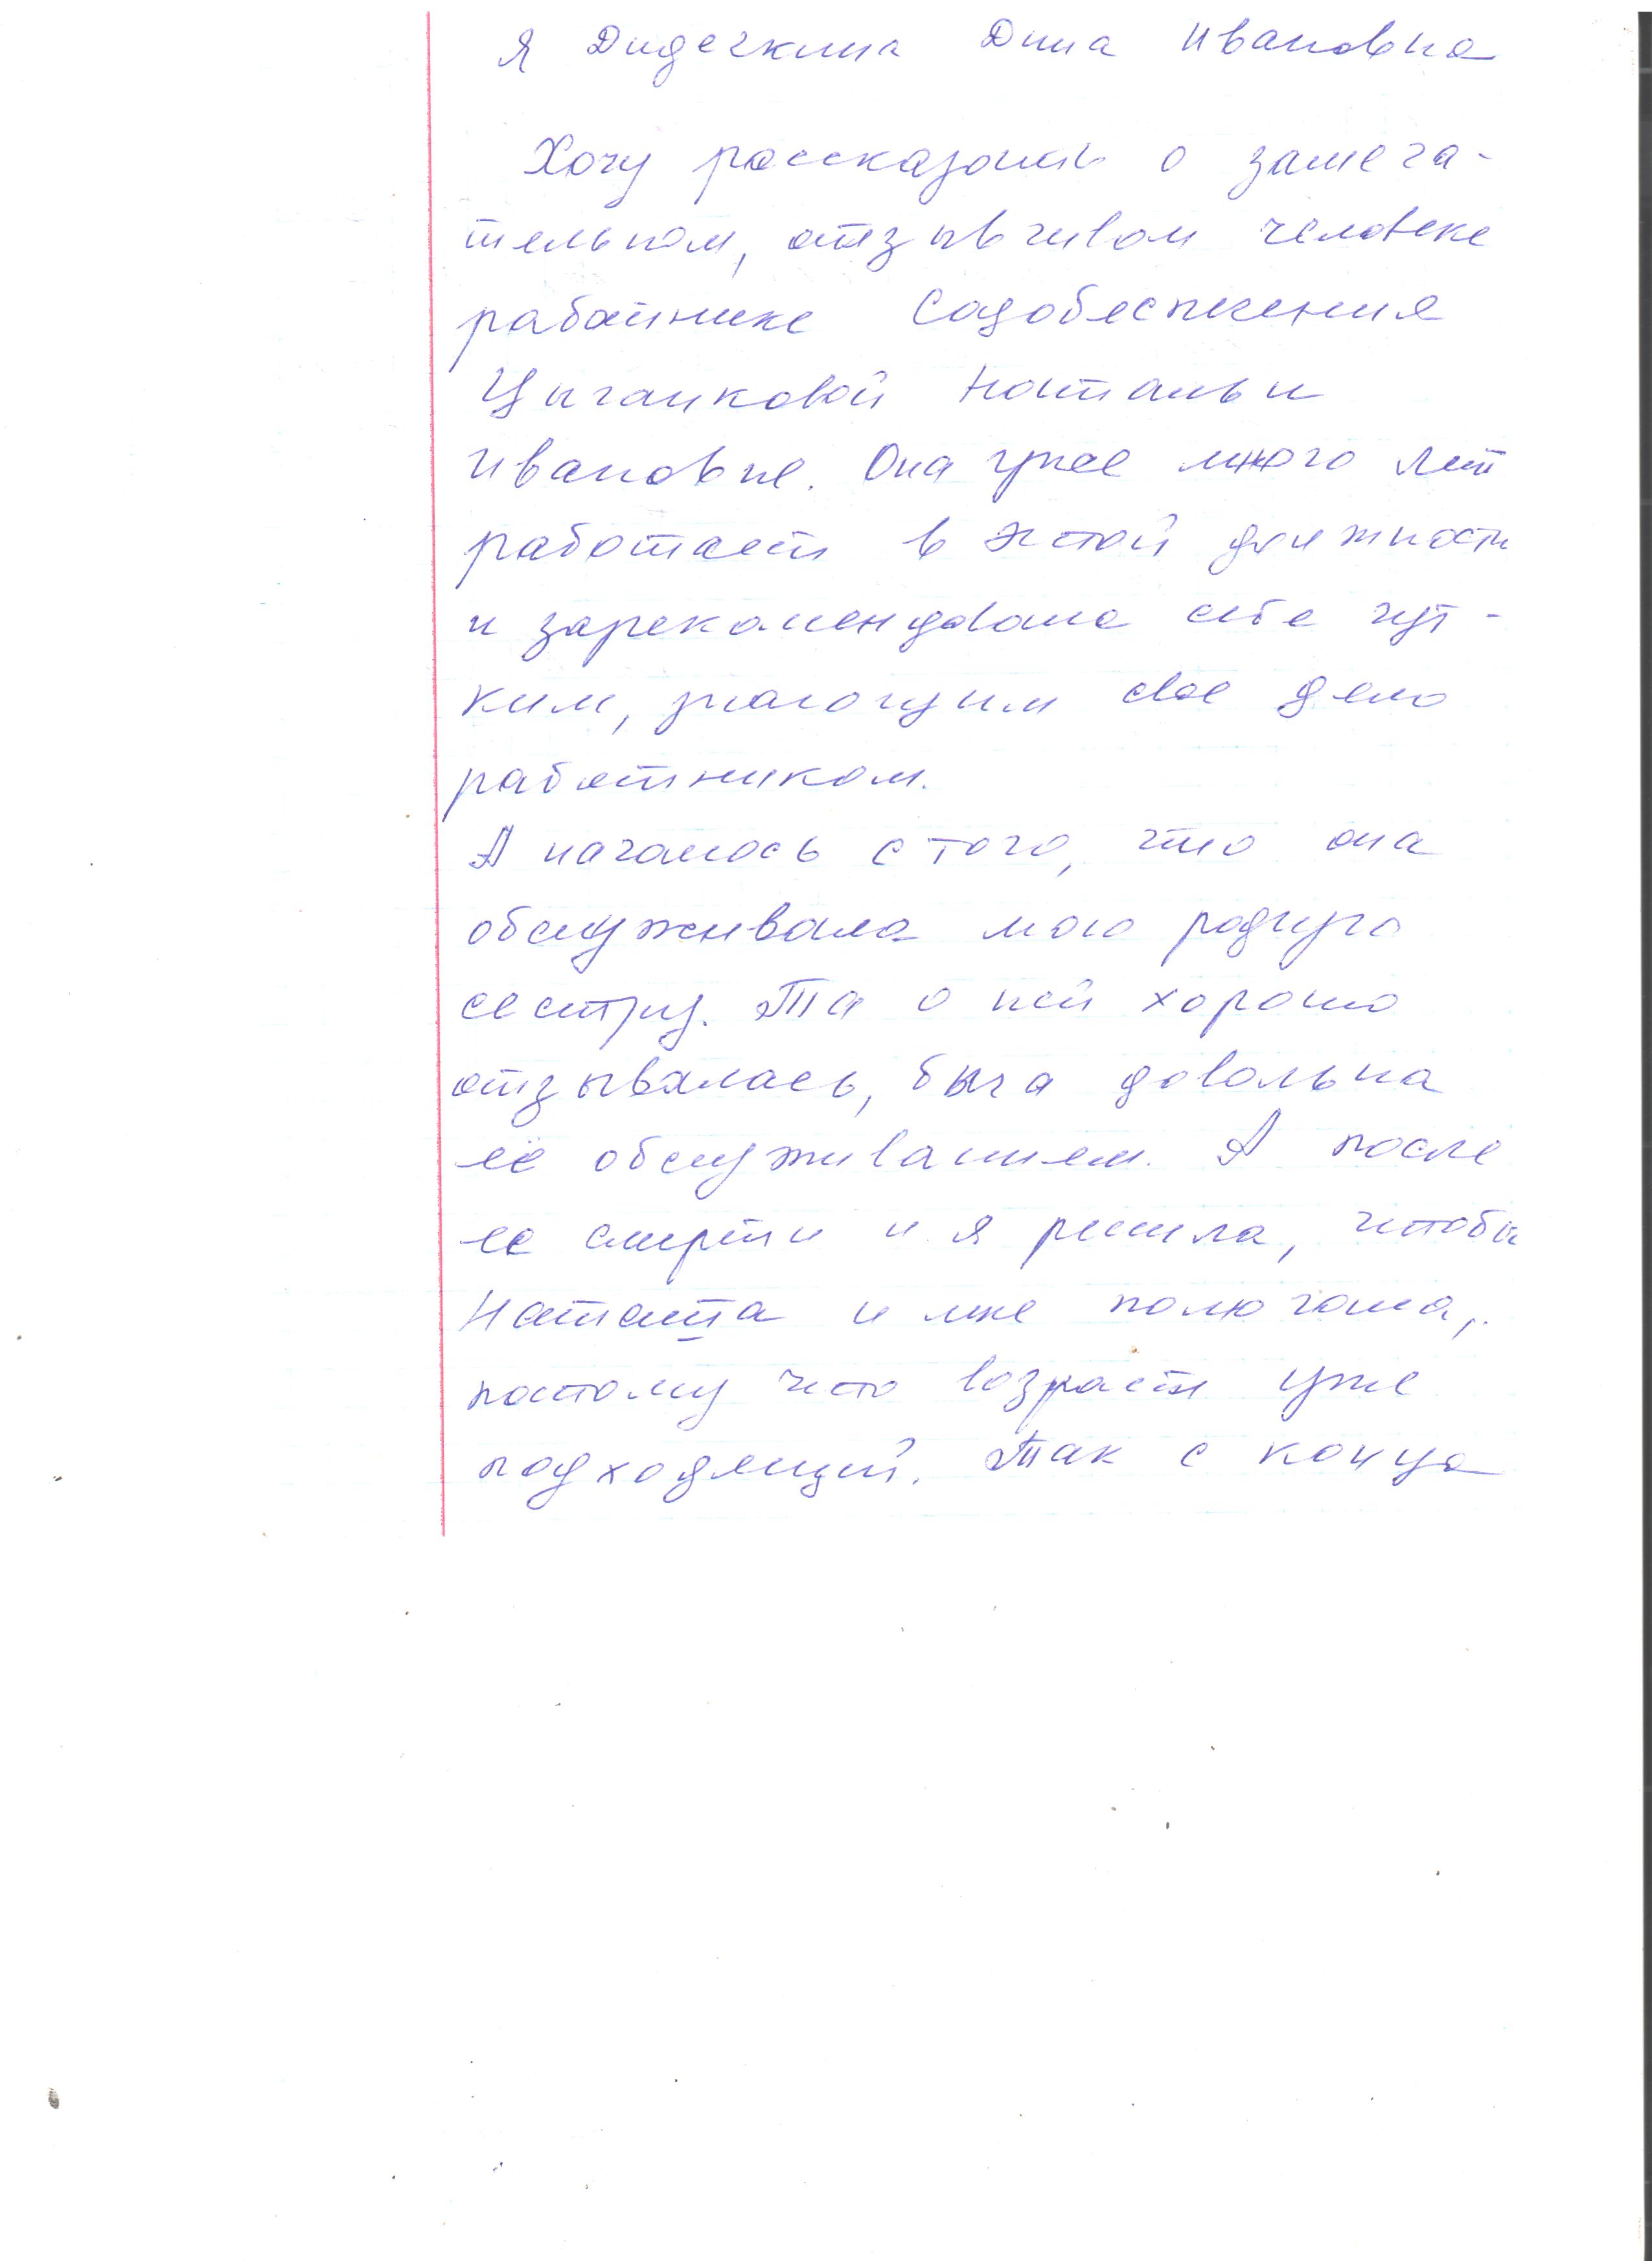 Я Дидечкина Дина Ивановна
Хочу рассказать о замеча-
тельном, отзывчивом человеке
работнике Содобеспечения
Цыганковой Натальи
Ивановне. Она уже много лет
работает в этой должности
и зарекомендовала себя чут-
ким, знающим свое дело
работником.
А началось с того, что она
обслуживала мою родную
сестру. Та о ней хорошо
отзывалась, была довольна
её обслуживанием. А после
ее смерти и я решила, чтобы
Наташа и мне помогала,
потому что возраст уже
подходящий. Так с конца